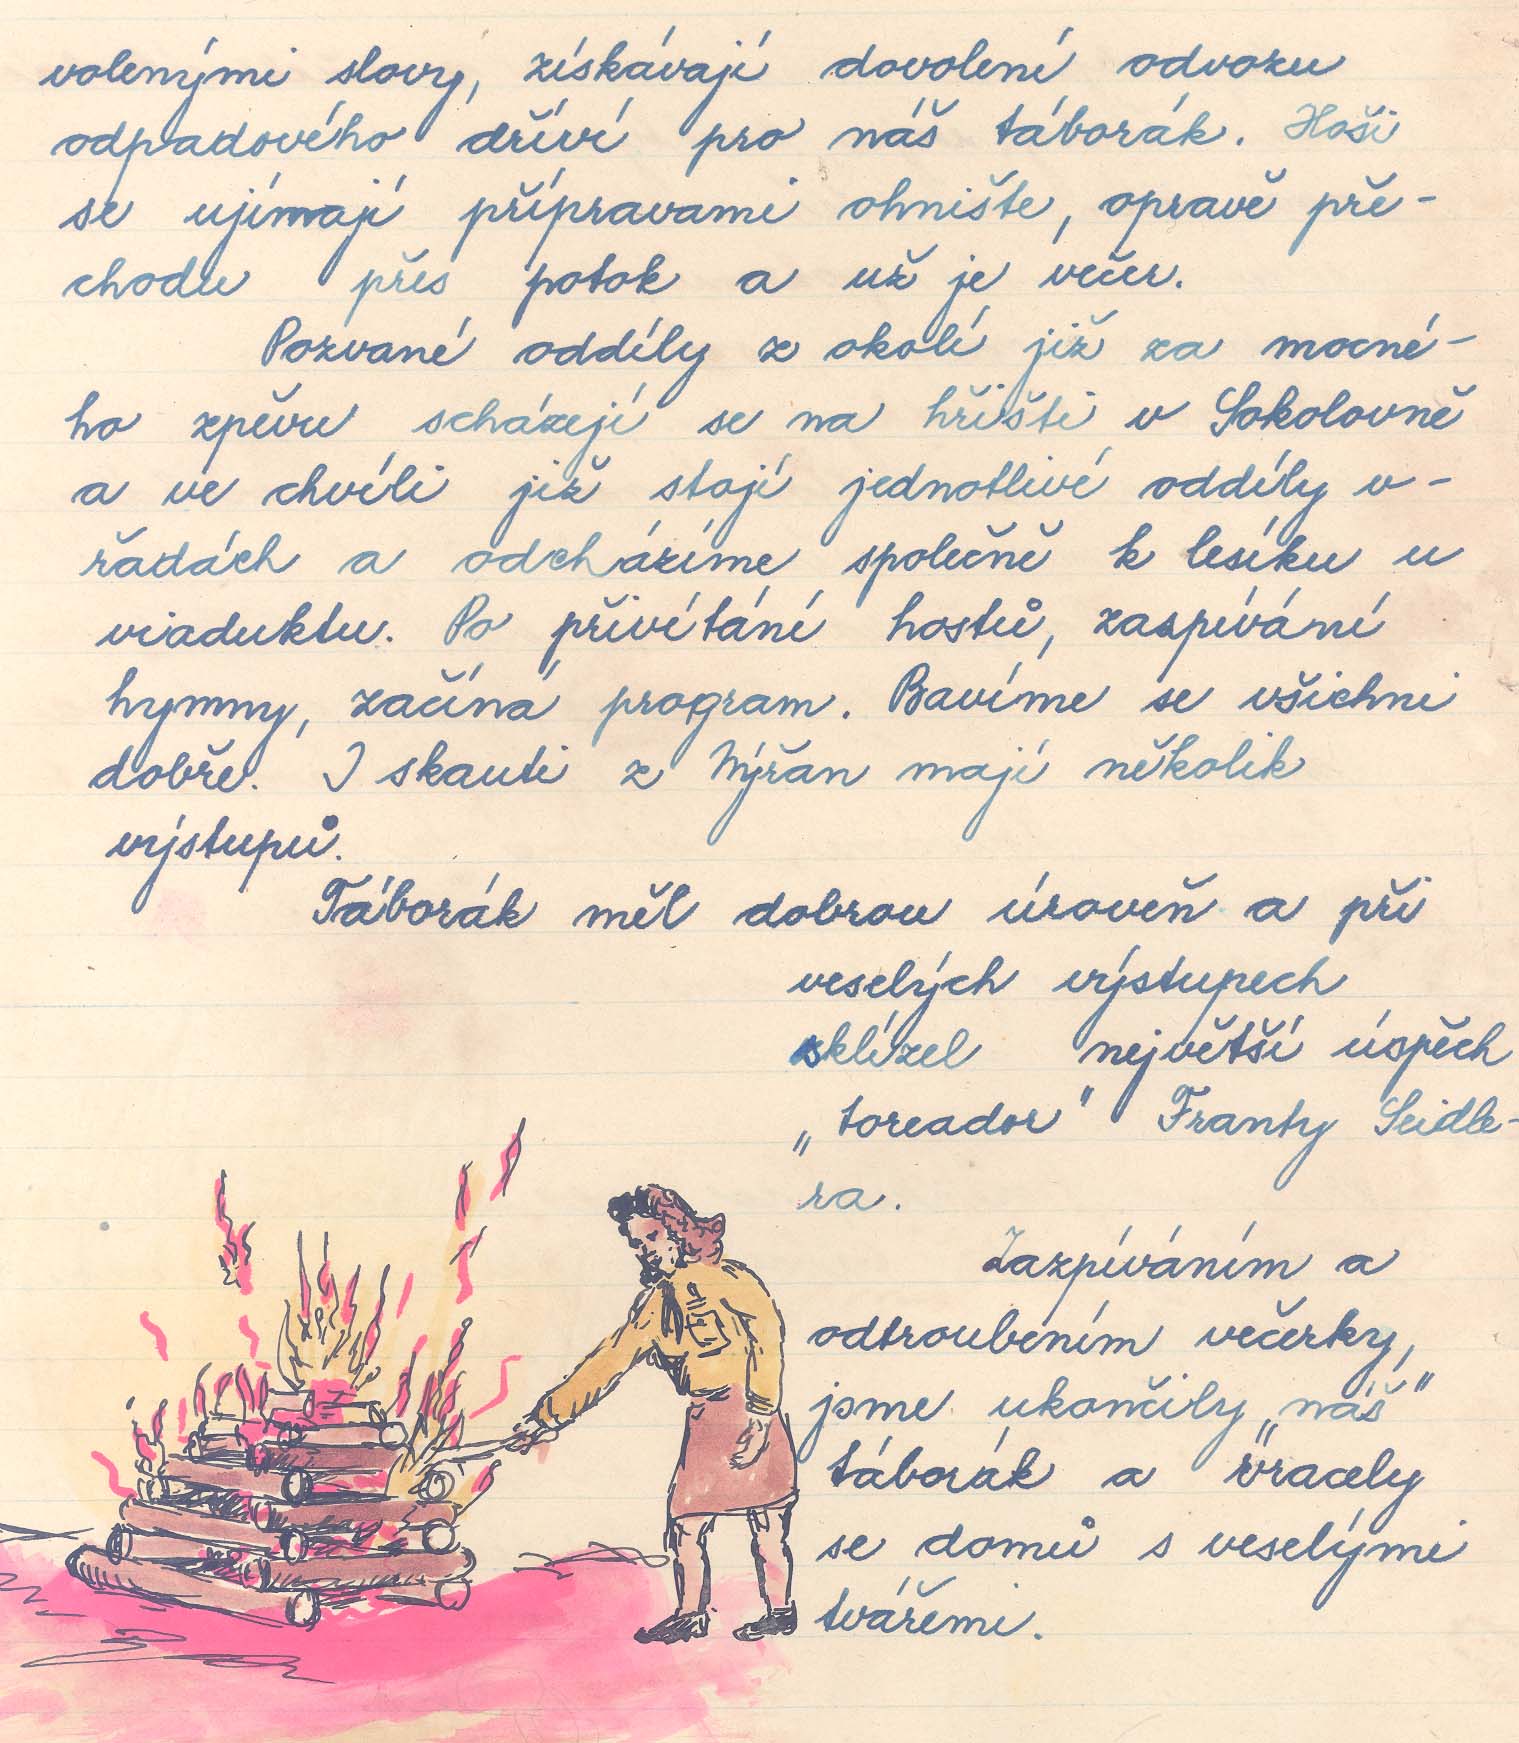 volenými slovy, získávají dovolení odvozu
odpadového dříví pro náš táborák. Hoši
se ujímají přípravami ohniště, opravě pře-
chodu přes potok a už je večer.
Pozvané oddíly z okolí již za mocné-
ho zpěvu scházejí se na hřišti v Sokolovně
a ve chvíli již stojí jednotlivé oddíly v-
řadách a odcházíme společně k lesíku u
viaduktu. Po přivítání hostů, zaspívání
hymny, začíná program. Bavíme se všichni
dobře. I skauti z Nýřan mají několik
výstupů.
Táborák měl dobrou úroveň a při
veselých výstupech
sklízel největší úspěch
„toreador" Franty Seidle-
ra.
Zazpíváním a
odtroubením večerky,
jsme ukončily „náš"
táborák a vracely
se domů s veselými
tvářemi.